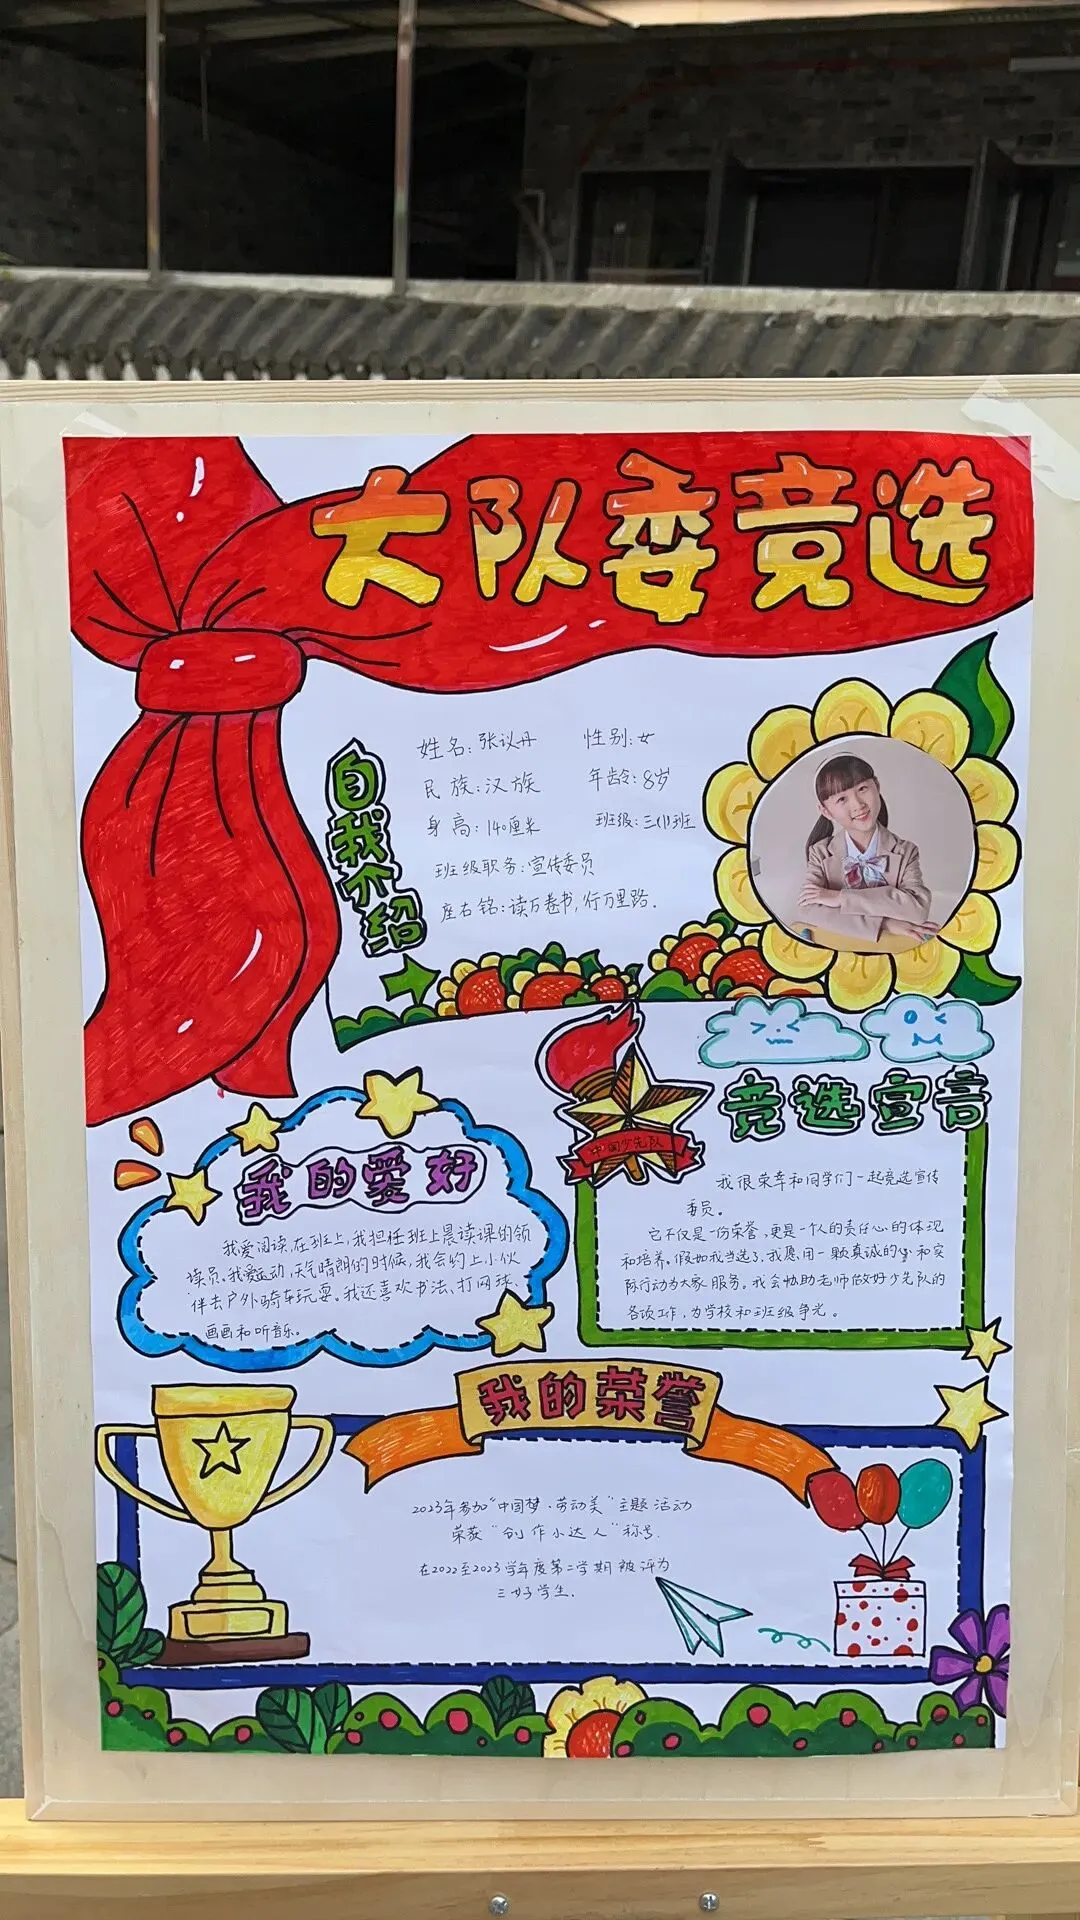 大队委竞选
自我介绍
姓名:张议丹 性别:女
民族:汉族 年龄:8岁
身高:140厘米 班级:三(1)班
班级职务:宣传委员
座右铭:读万卷书,行万里路.
中国少先队
竞选宣言
我很荣幸和同学们一起竞选宣传
委员。
它不仅是一份荣誉,更是一个人的责任心的体现
和培养。假如我当选了,我愿用一颗真诚的心和实
际行动为大家服务。我会协助老师做好少先队的
各项工作,为学校和班级争光。
我的爱好
我爱阅读,在班上,我担任班上晨读课的领
读员。我爱运动,天气晴朗的时候,我会约上小伙
伴去户外骑车玩耍。我还喜欢书法、打网球、
画画和听音乐。
我的荣誉
2023年参加“中国梦·劳动美”主题活动
荣获“创作小达人”称号.
在2022至2023学年度第二学期被评为
三好学生.